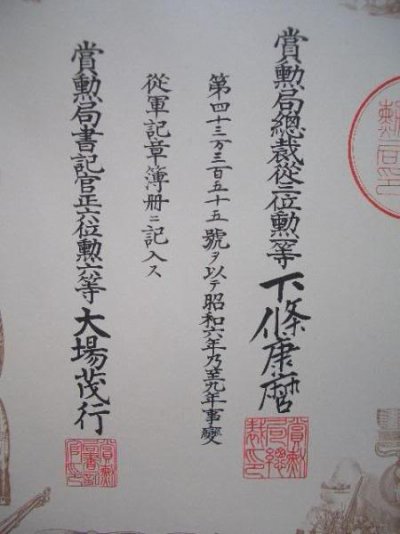 賞勲局總裁從三位勲一等下條康麿
第四十三万三百五十五號ヲ以テ昭和六年乃至九年事變
從軍記章簿册ニ記入ス
賞勲局書記官正六位勲六等大場茂行